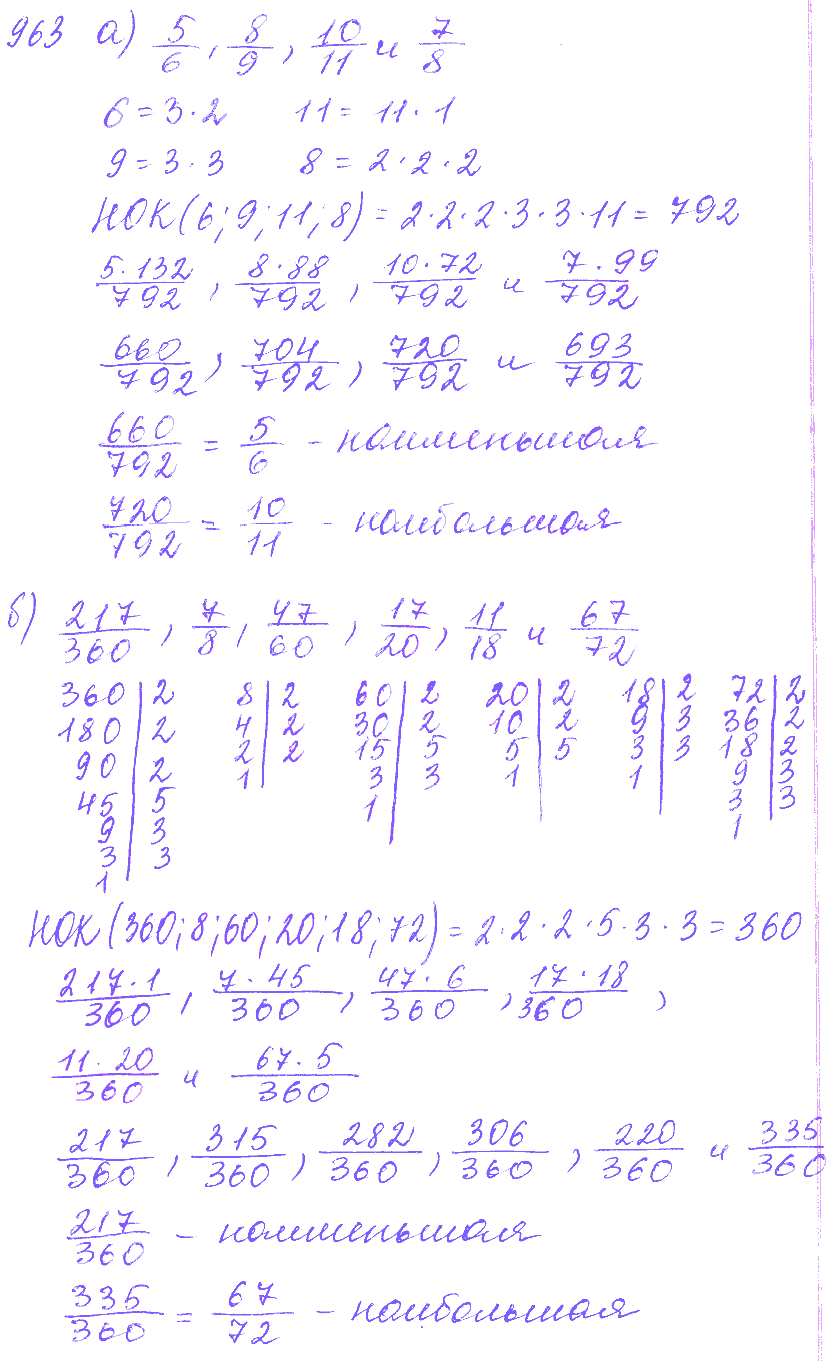 963 а) 5/6, 8/9, 10/11 и 7/8
6 = 3·2 11 = 11·1
9 = 3·3 8 = 2·2·2
НОК(6; 9; 11; 8) = 2·2·2·3·3·11 = 792
5·132/792, 8·88/792, 10·72/792 и 7·99/792
660/792, 704/792, 720/792 и 693/792
660/792 = 5/6 - наименьшая
720/792 = 10/11 - наибольшая
б) 217/360, 7/8, 47/60, 17/20, 11/18 и 67/72
360|2 8|2 60|2 20|2 18|2 72|2
180|2 4|2 30|2 10|2 9|3 36|2
90|2 2|2 15|5 5|5 3|3 18|2
45|5 1| 3|3 1| 1| 9|3
9|3 1| 3|3
3|3 1|
1|
НОК(360; 8; 60; 20; 18; 72) = 2·2·2·5·3·3 = 360
217·1/360, 7·45/360, 47·6/360, 17·18/360,
11·20/360 и 67·5/360
217/360, 315/360, 282/360, 306/360, 220/360 и 335/360
217/360 - наименьшая
335/360 = 67/72 - наибольшая